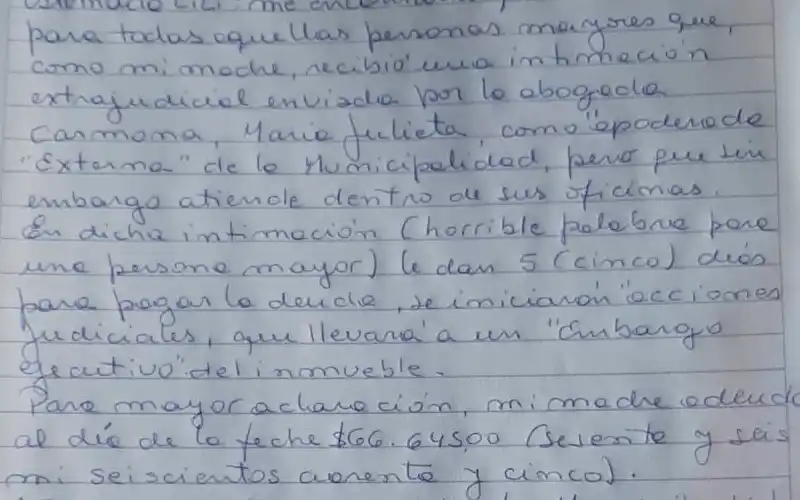 me
para todas aquellas personas mayores que,
como mi madre, recibió una intimación
extrajudicial enviada por la abogada
Carmona, Maria Julieta, como "apoderada
"Externa" de la Municipalidad, pero que sin
embargo atiende dentro de sus oficinas.
En dicha intimación (horrible palabra para
una persona mayor) le dan 5 (cinco) días
para pagar la deuda, se iniciarán "acciones
judiciales, que llevará a un "Embargo
ejecutivo" del inmueble.
Para mayor aclaración, mi madre adeuda
al día de la fecha $66.645,00 (Sesenta y seis
mi seiscientos cuarenta y cinco).